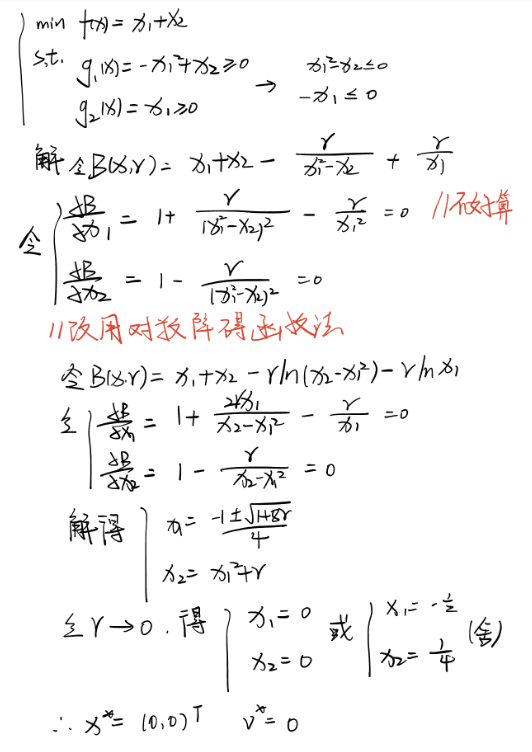 min f(x) = x₁+x₂
s.t. g₁(x) = -x₁²+x₂ ≥ 0 → x₁²-x₂ ≤ 0
g₂(x) = x₁ ≥ 0 -x₁ ≤ 0
解 令B(x,r) = x₁+x₂ - r/(x₁²-x₂) + r/x₁
令 ∂B/∂x₁ = 1 + r/(x₁²-x₂)² - r/x₁² = 0 //不好算
∂B/∂x₂ = 1 - r/(x₁²-x₂)² = 0
//改用对数障碍函数法
令B(x,r) = x₁+x₂ - r ln(x₂-x₁²) - r ln x₁
令 ∂B/∂x₁ = 1 + 2rx₁/(x₂-x₁²) - r/x₁ = 0
∂B/∂x₂ = 1 - r/(x₂-x₁²) = 0
解得 x₁ = (-1±√(1+8r))/4
x₂ = x₁²+r
令 r→0. 得 x₁ = 0 或 x₁ = -½ (舍)
x₂ = 0 x₂ = ¼
∴ x* = (0,0)ᵀ v* = 0